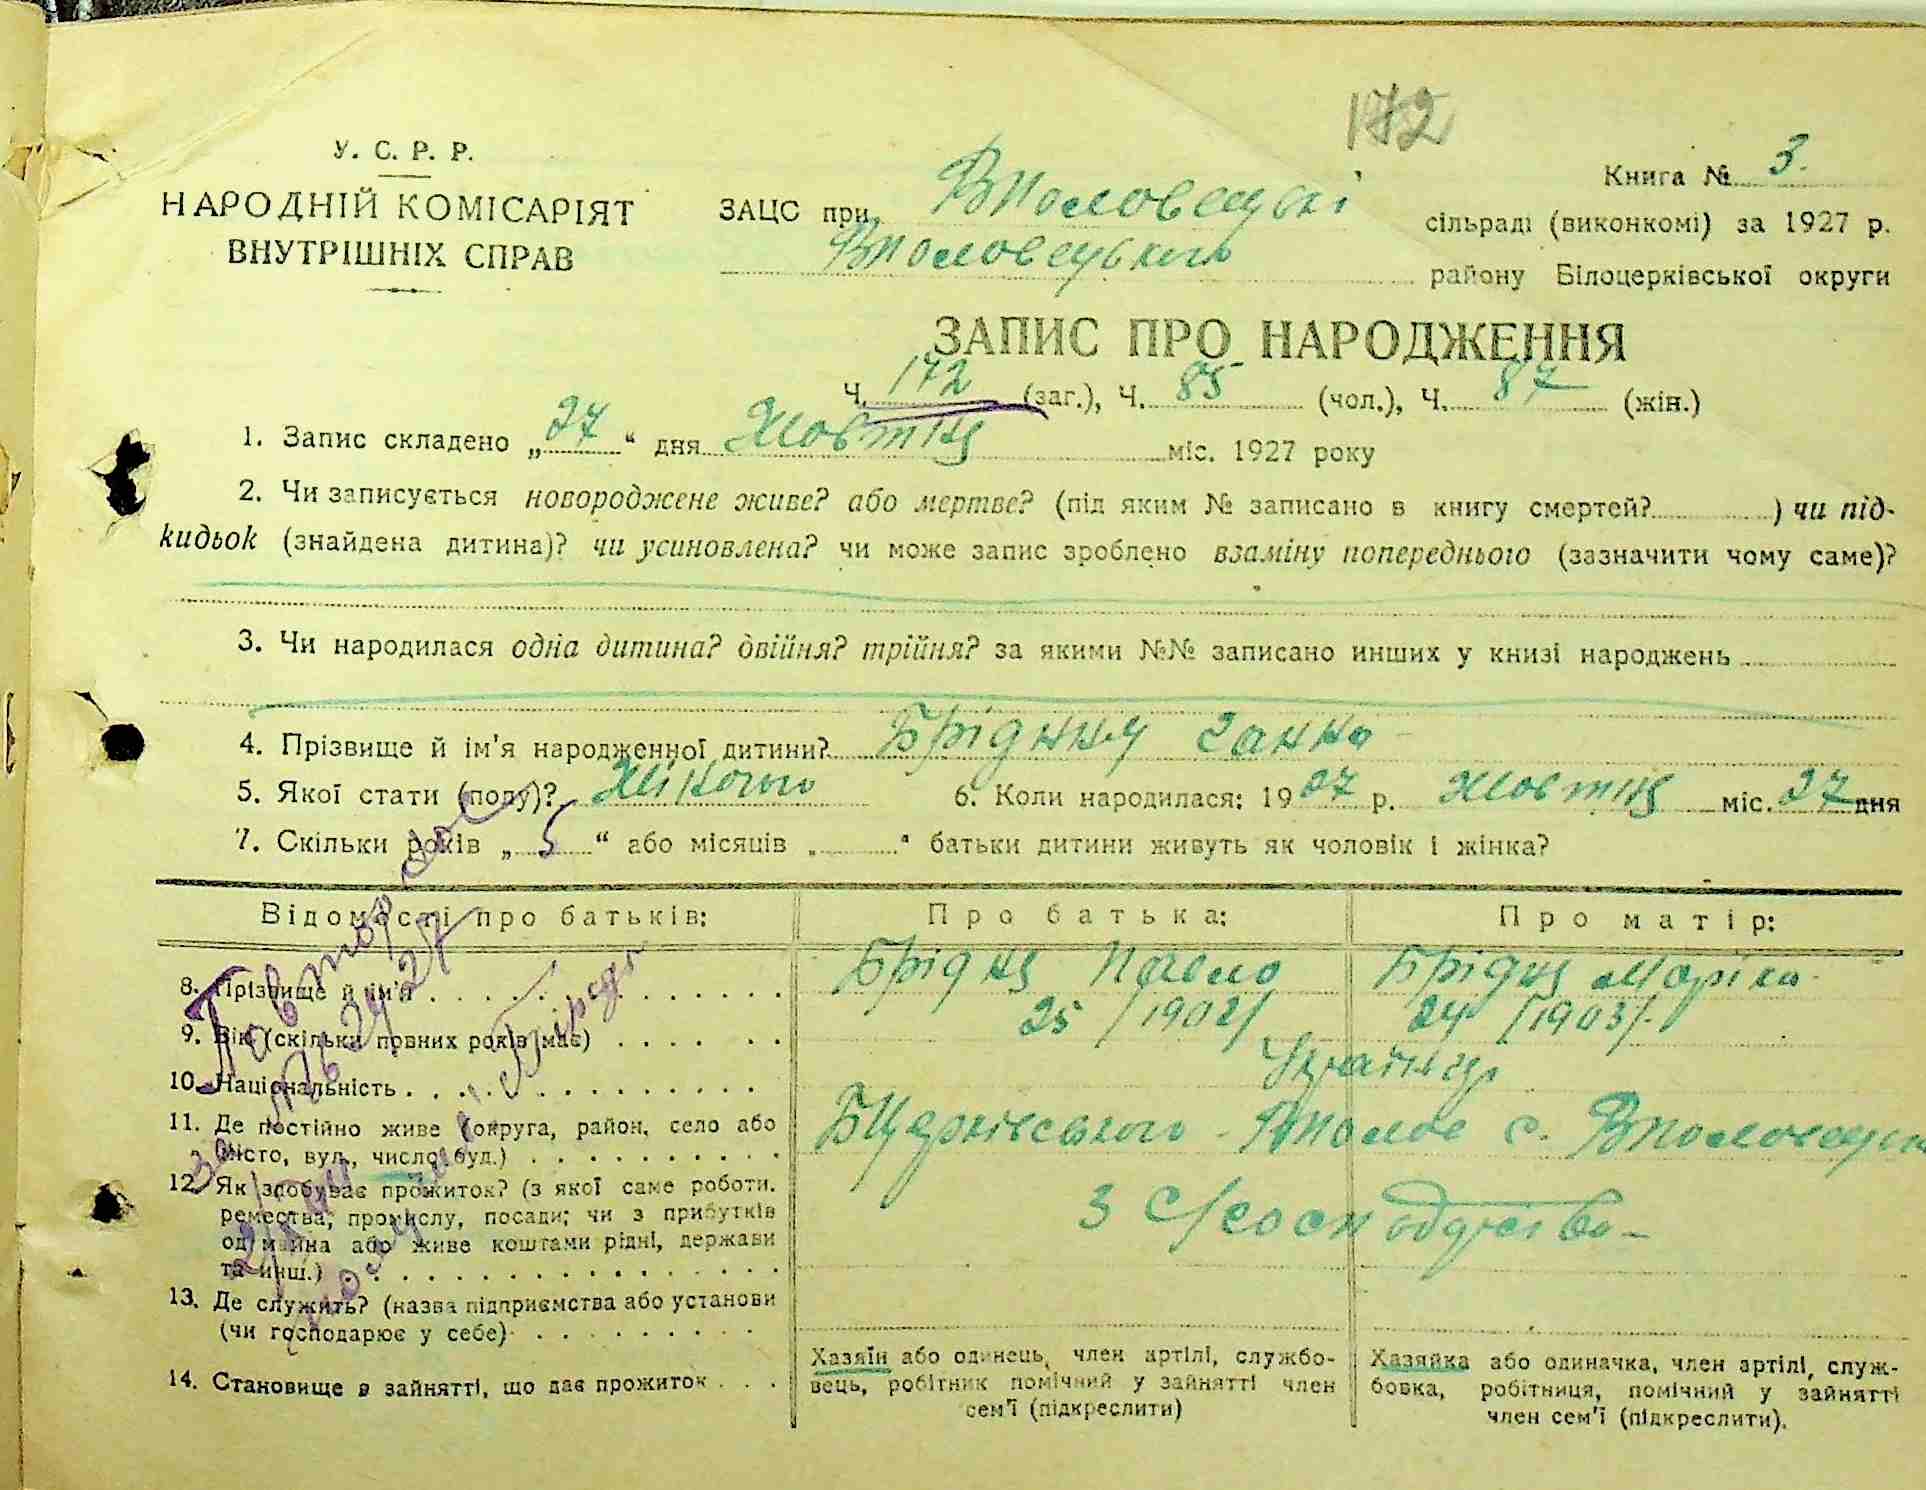 172
У. С. Р. Р.
НАРОДНІЙ КОМІСАРІЯТ
ВНУТРІШНІХ СПРАВ
Книга № 3.
ЗАЦС при Вполовецькі сільраді (виконкомі) за 1927 р.
Вполовецького району Білоцерківської округи
ЗАПИС ПРО НАРОДЖЕННЯ
Ч. 172 (заг.), Ч. 85 (чол.), Ч. 87 (жін.)
1. Запис складено „27“ дня Жовтня міс. 1927 року
2. Чи записується новороджене живе? або мертве? (під яким № записано в книгу смертей? ) чи під-
кидьок (знайдена дитина)? чи усиновлена? чи може запис зроблено взаміну попереднього (зазначити чому саме)?
3. Чи народилася одна дитина? двійня? трійня? за якими №№ записано инших у книзі народжень
4. Прізвище й ім'я народженної дитини? Ганна
5. Якої стати (полу)? Жіночого 6. Коли народилася: 1927 р. Жовтня міс. 27 дня
7. Скільки років „5“ або місяців „ “ батьки дитини живуть як чоловік і жінка?
Відомості про батьків: Про батька: Про матір:
8. Прізвище й ім'я Брідня Павло Брідня Марія
9. Вік (скільки повних років має) 25 /1902/ 24 /1903/
10. Національність
11. Де постійно живе (округа, район, село або
місто, вул., число буд.) БЦерківського Вполов с. Вполовецьк
12. Як здобуває прожиток? (з якої саме роботи,
ремества, промислу, посади; чи з прибутків
од майна або живе коштами рідні, держави
та инш.) З
13. Де служить? (назва підприємства або установи
(чи господарює у себе)
14. Становище в зайнятті, що дає прожиток
Хазяїн або одинець, член артілі, службо-
вець, робітник помічний у зайнятті член
сем'ї (підкреслити)
Хазяйка або одиначка, член артілі, служ-
бовка, робітниця, помічний у зайнятті
член сем'ї (підкреслити).